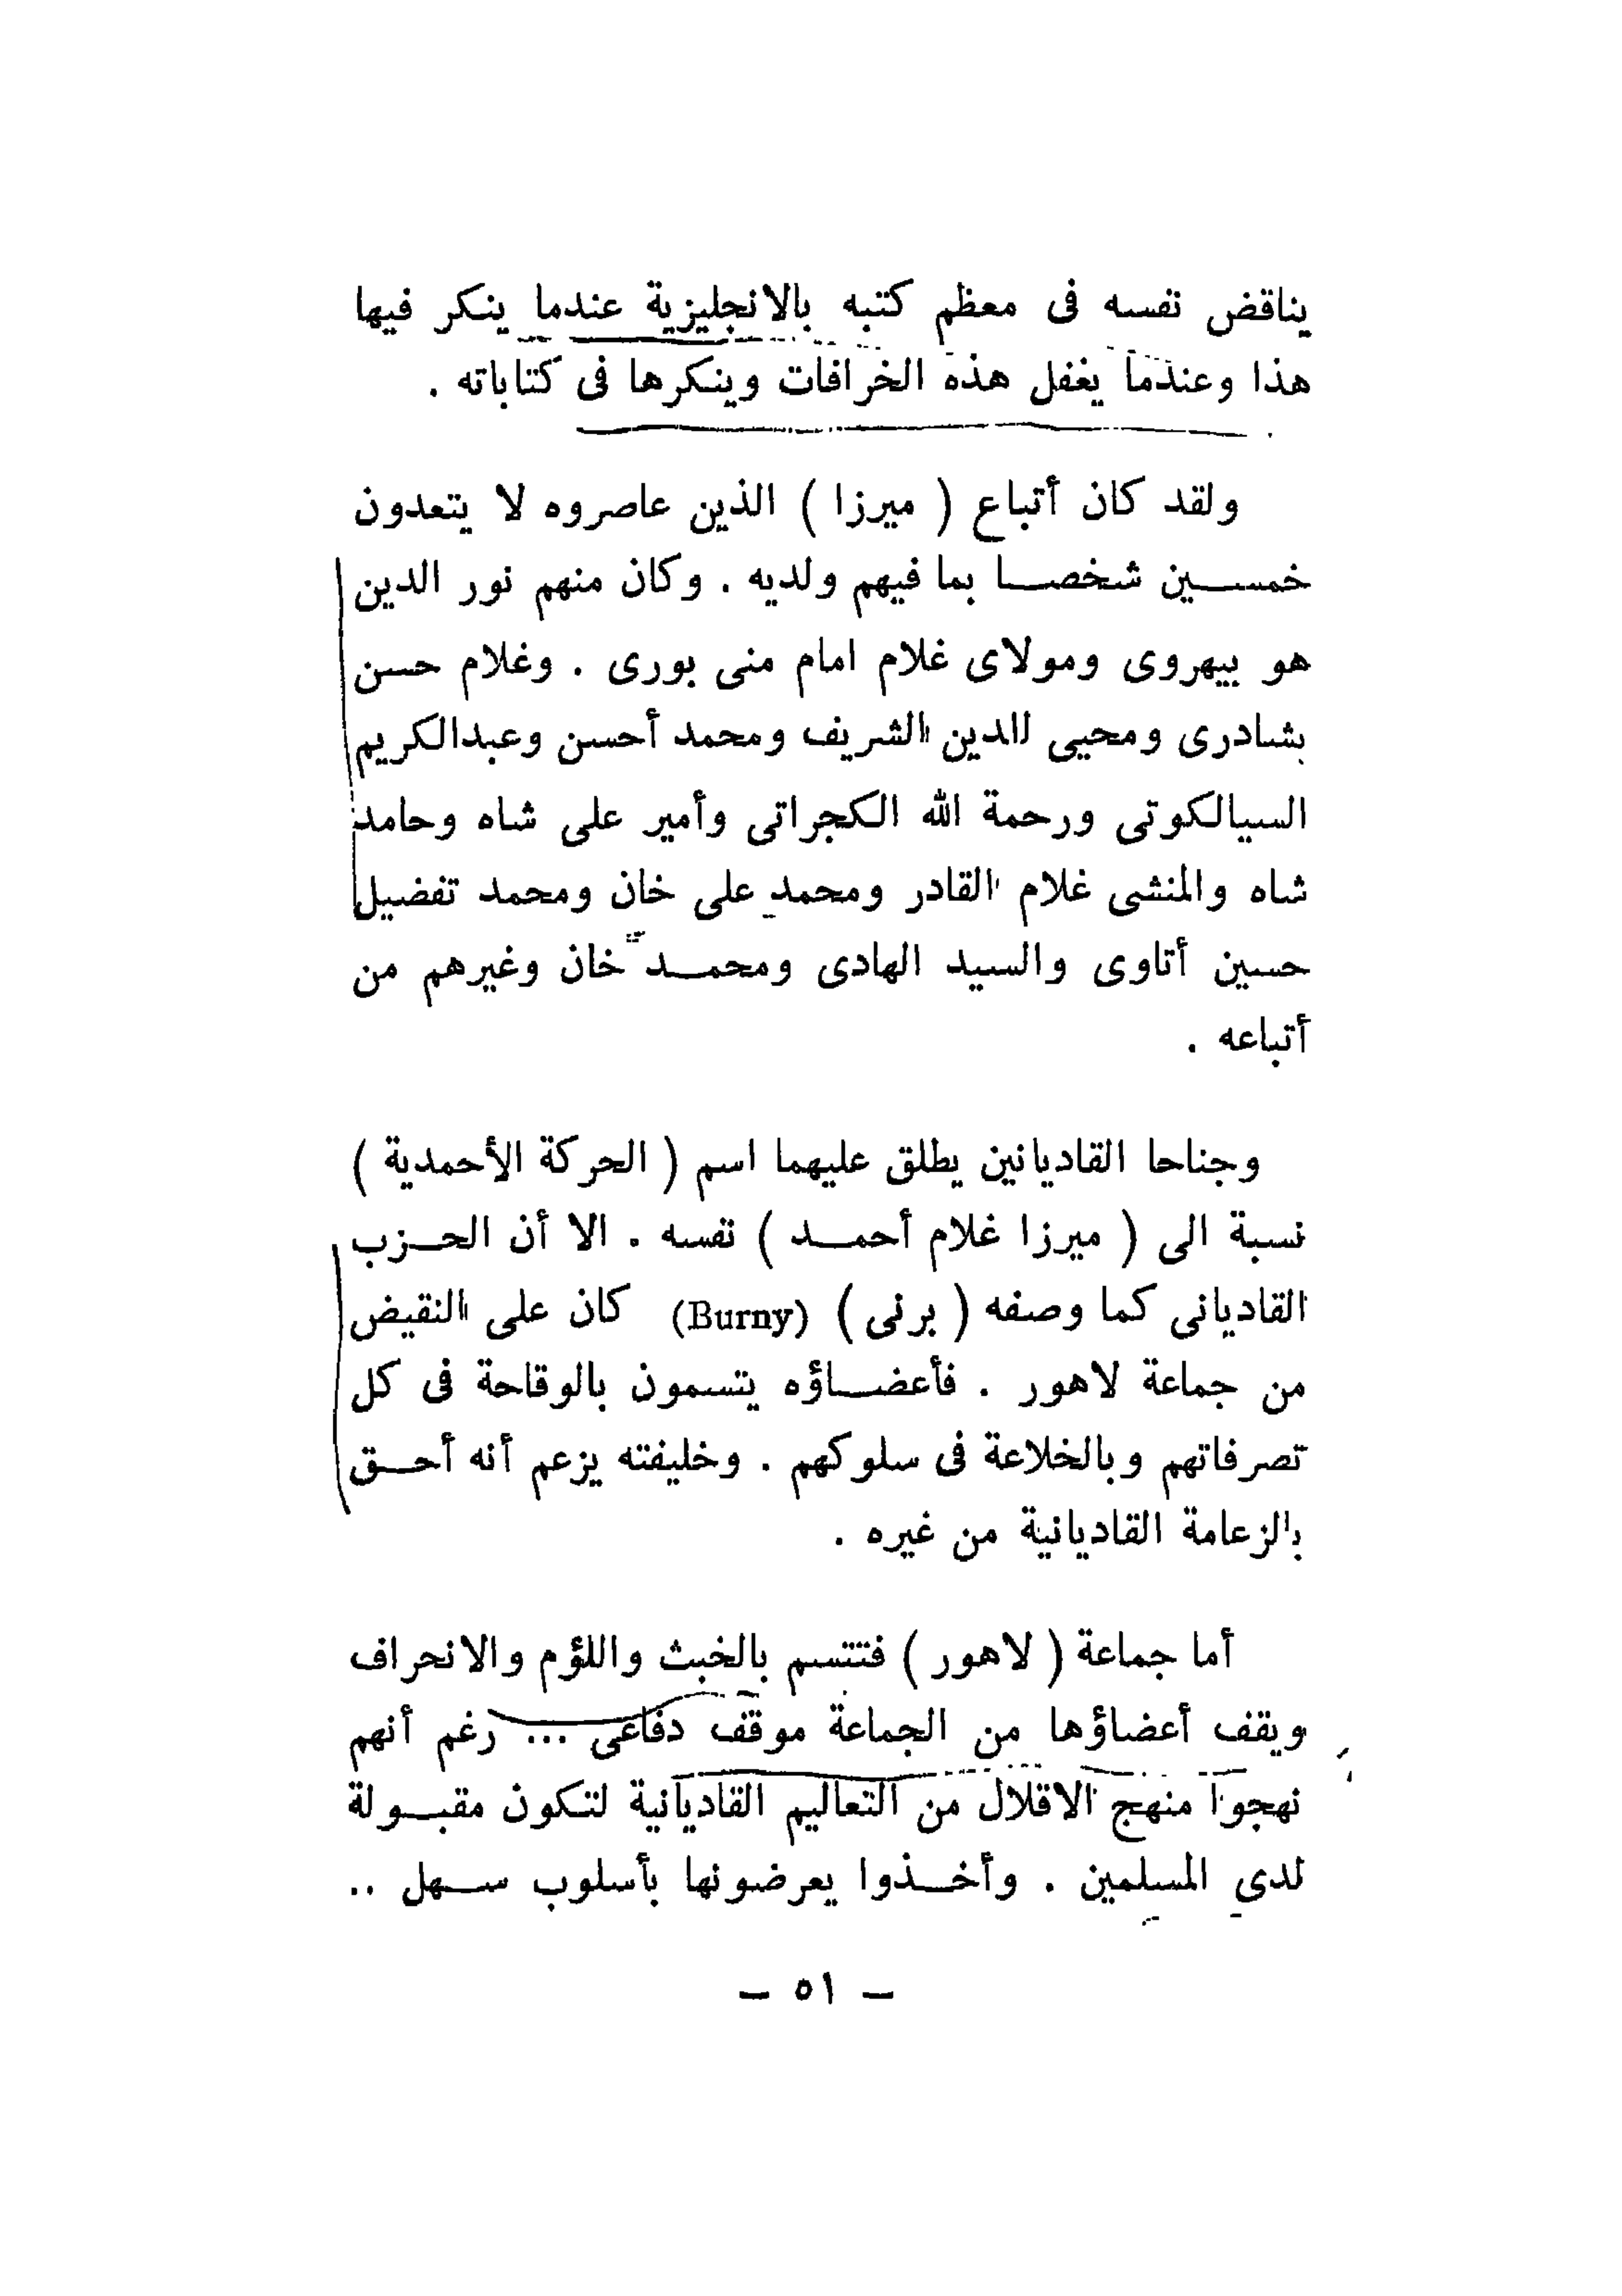 يناقض نفسه فى معظم كتبه بالانجليزية عندما ينكر فيها
هذا وعندما يغفل هذه الخرافات وينكرها فى كتاباته .
ولقد كان أتباع ( ميرزا ) الذين عاصروه لا يتعدون
خمسين شخصا بما فيهم ولديه . وكان منهم نور الدين
هو بيهروى ومولاى غلام امام منى بورى . وغلام حسن
بشادرى ومحيى الدين الشريف ومحمد أحسن وعبدالكريم
السيالكوتى ورحمة الله الكجراتى وأمير على شاه وحامد
شاه والمنشى غلام القادر ومحمد على خان ومحمد تفضيل
حسين أتاوى والسيد الهادى ومحمد خان وغيرهم من
أتباعه .
وجناحا القاديانين يطلق عليهما اسم ( الحركة الأحمدية )
نسبة الى ( ميرزا غلام أحمد ) نفسه . الا أن الحزب
القاديانى كما وصفه ( برنى ) (Burny) كان على النقيض
من جماعة لاهور . فأعضاؤه يتسمون بالوقاحة فى كل
تصرفاتهم وبالخلاعة فى سلوكهم . وخليفته يزعم أنه أحق
بالزعامة القاديانية من غيره .
أما جماعة ( لاهور ) فتتسم بالخبث واللؤم والانحراف
ويقف أعضاؤها من الجماعة موقف دفاعى ... رغم أنهم
نهجوا منهج الاقلال من التعاليم القاديانية لتكون مقبولة
لدى المسلمين . وأخذوا يعرضونها بأسلوب سهل ..
— ٥١ —